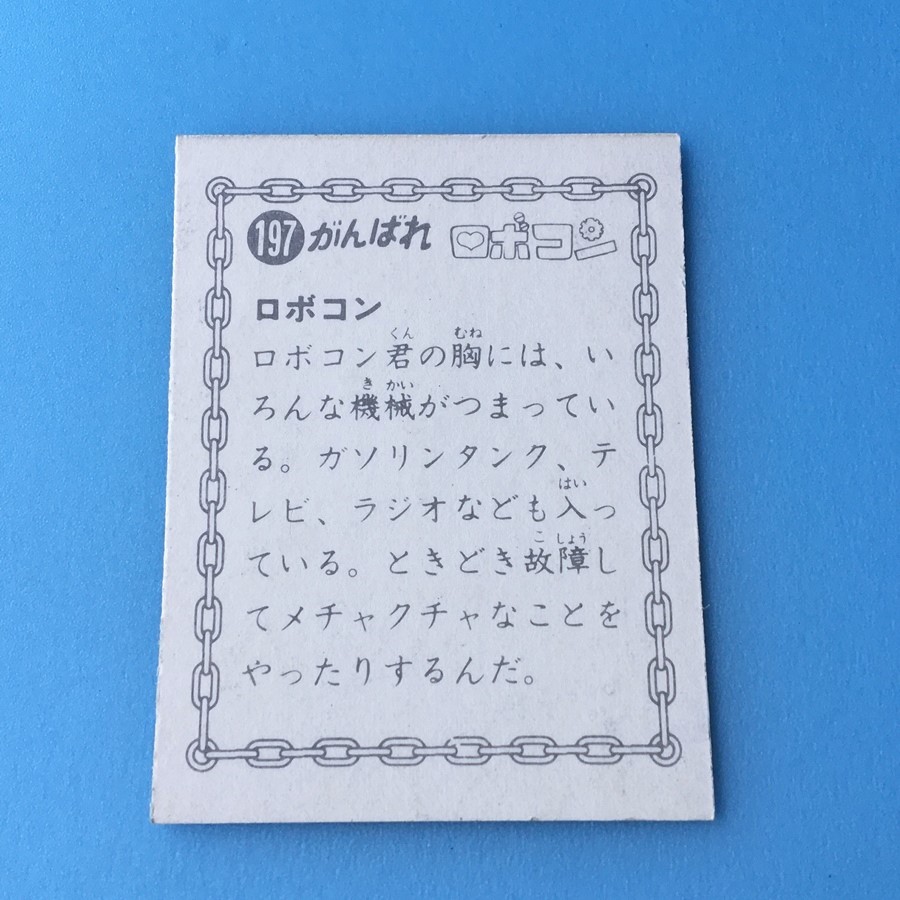 197 がんばれ ロボコン
ロボコン
ロボコン君の胸には、い
ろんな機械がつまってい
る。ガソリンタンク、テ
レビ、ラジオなども入っ
ている。ときどき故障し
てメチャクチャなことを
やったりするんだ。